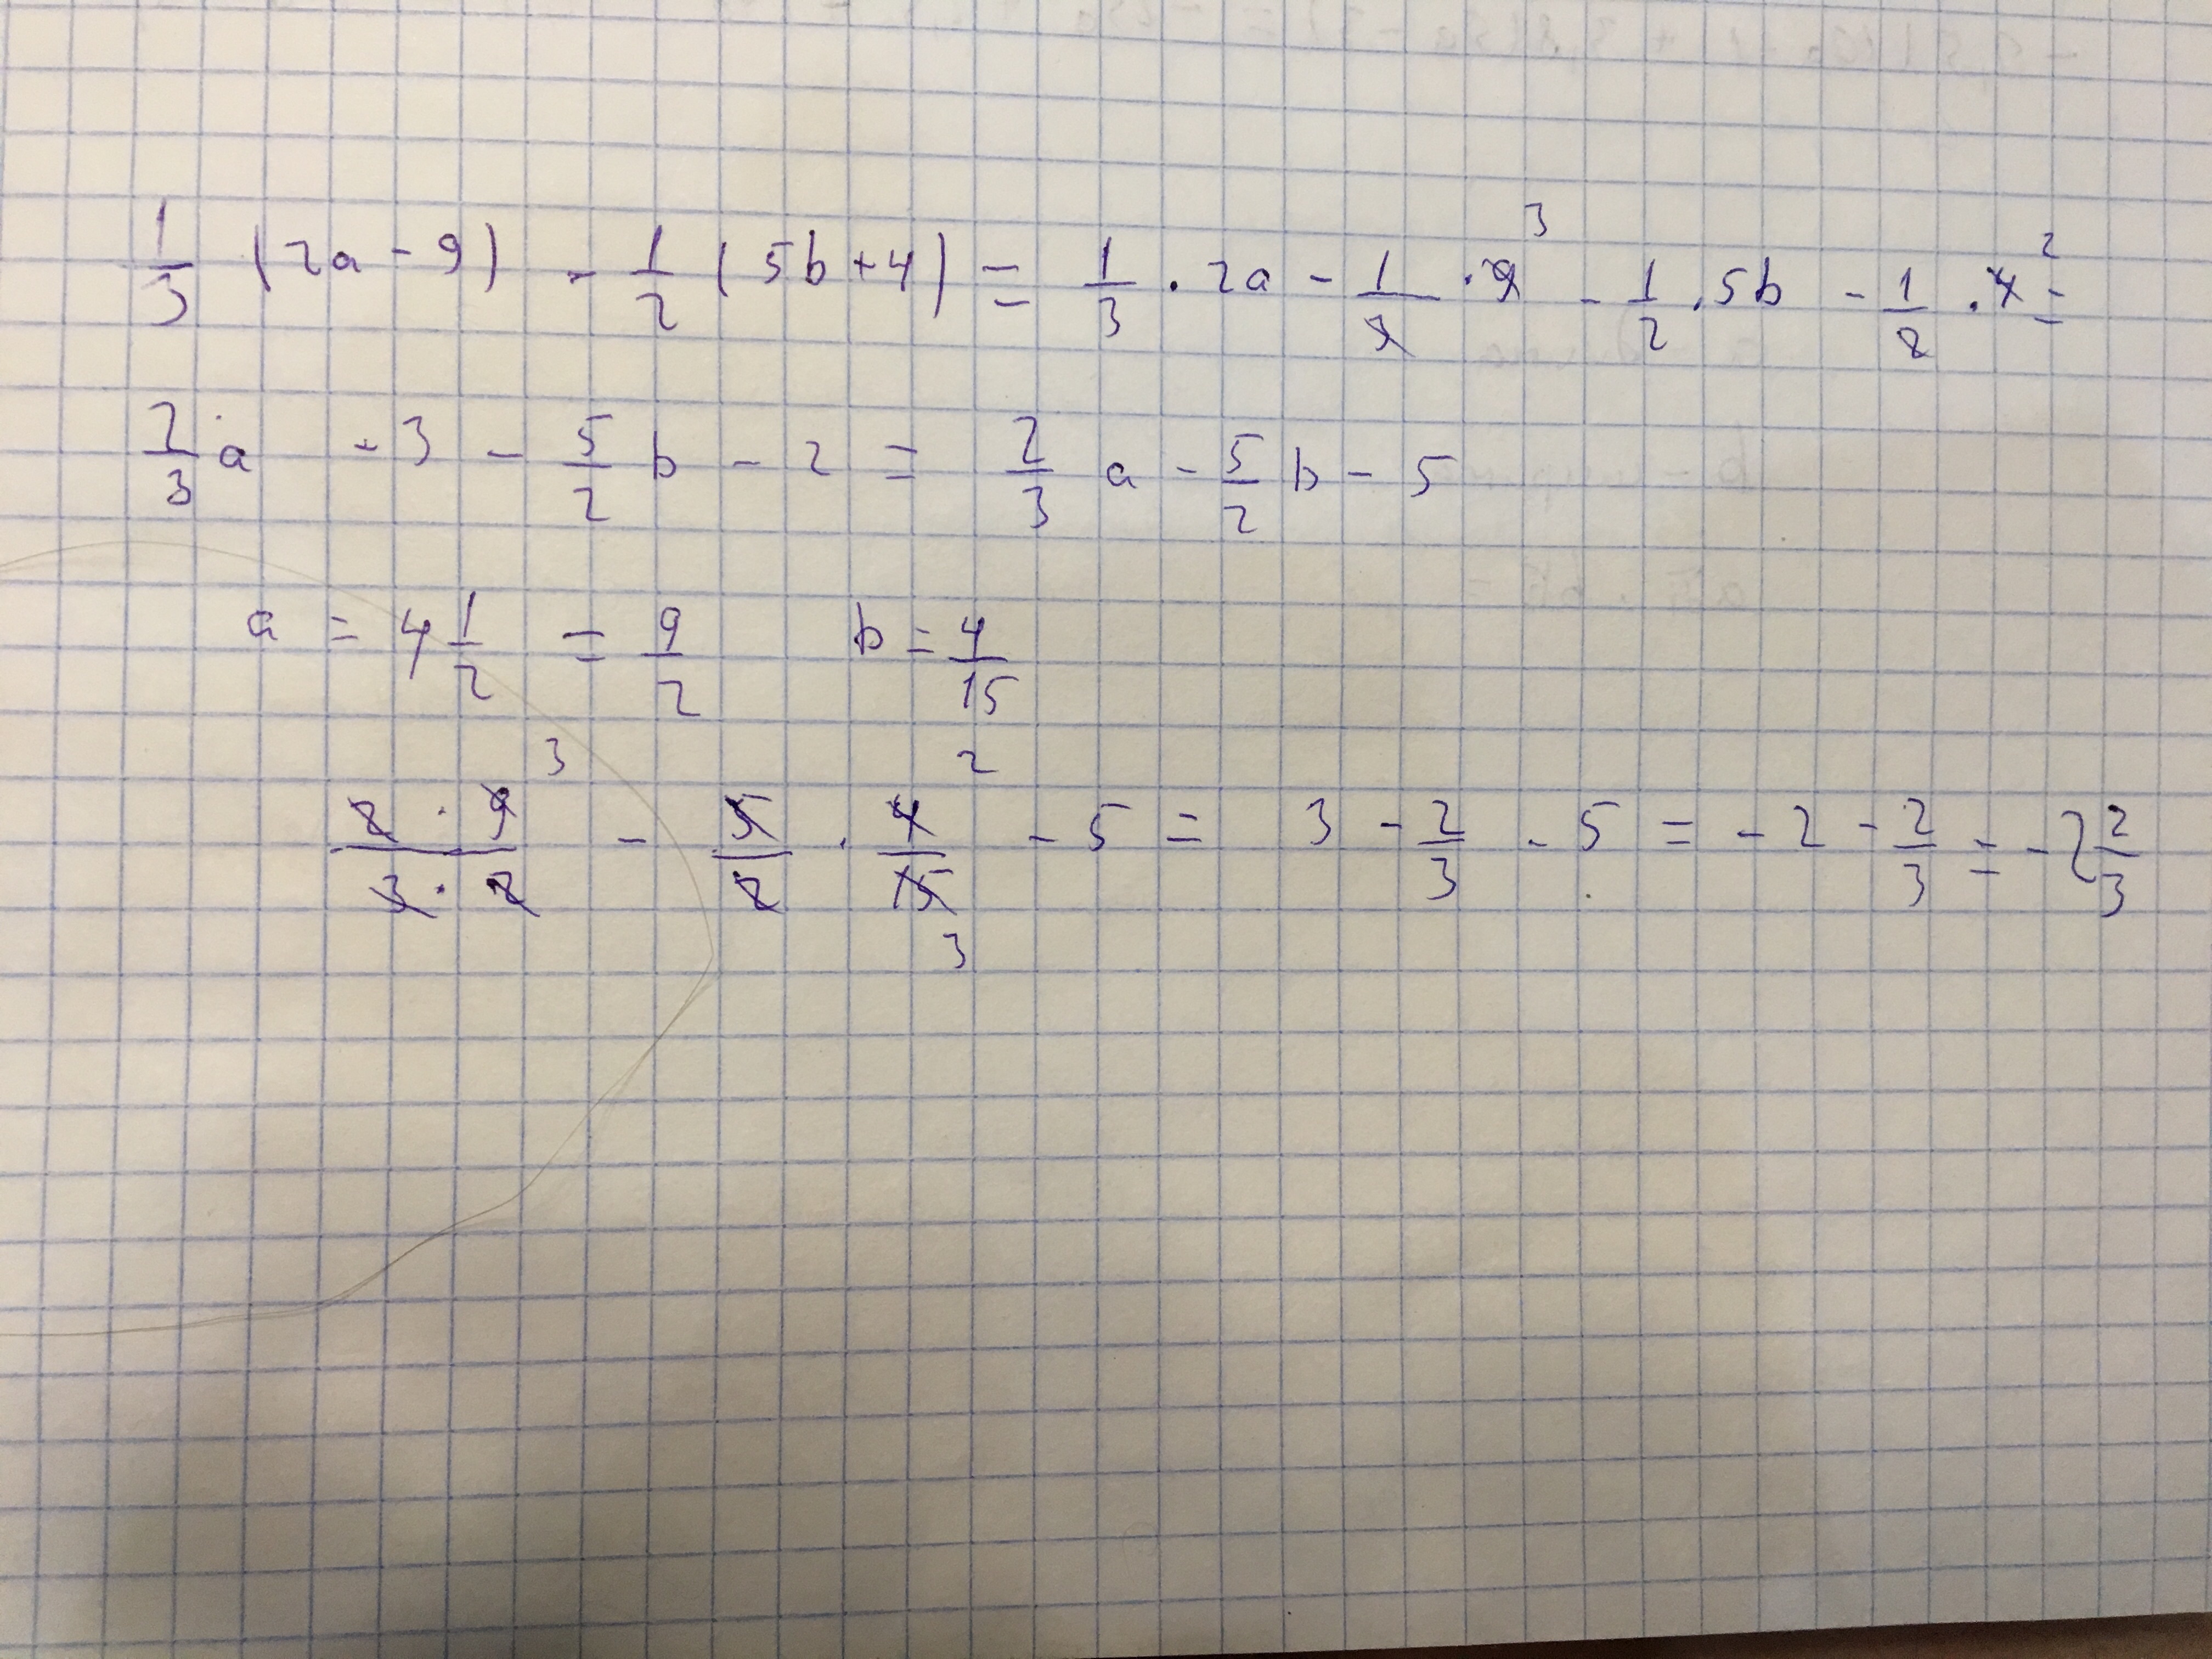 1/3 (2a - 9) - 1/2 (5b + 4) = 1/3 · 2a - 1/3 · 9 3 - 1/2 · 5b - 1/2 · 4 2 =
2/3 a - 3 - 5/2 b - 2 = 2/3 a - 5/2 b - 5
a = 4 1/2 = 9/2 b = 4/15
2 · 9 3 / 3 · 2 - 5/2 · 4 2 / 15 3 - 5 = 3 - 2/3 - 5 = - 2 - 2/3 = - 2 2/3